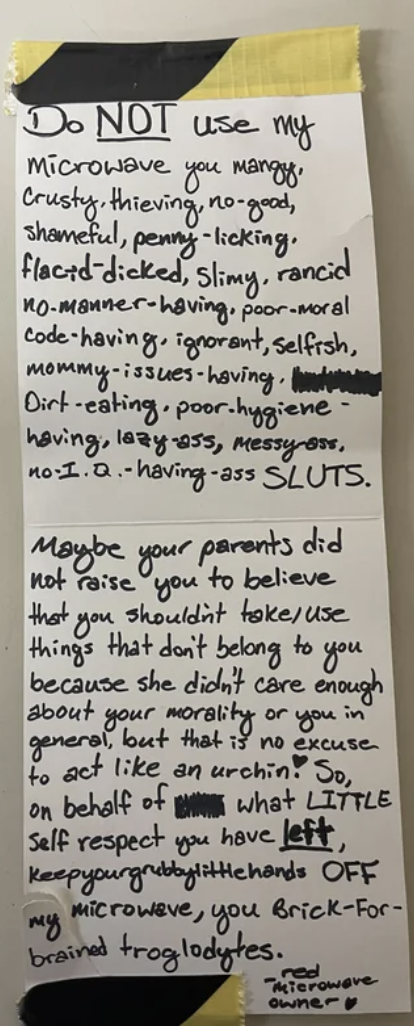 Do NOT use my
microwave you mangy,
crusty, thieving, no-good,
shameful, penny-licking,
flacid-dicked, slimy, rancid
no-manner-having, poor-moral
code-having, ignorant, selfish,
mommy-issues-having,
Dirt-eating, poor-hygiene-
having, lazy-ass, messy-ass,
no-I.Q.-having-ass SLUTS.
Maybe your parents did
not raise you to believe
that you shouldn't take/use
things that don't belong to you
because she didn't care enough
about your morality or you in
general, but that is no excuse
to act like an urchin! So,
on behalf of what LITTLE
self respect you have left,
keepyourgrubbylittlehands OFF
my microwave, you Brick-For-
brained troglodytes.
-red
microwave
owner ♥